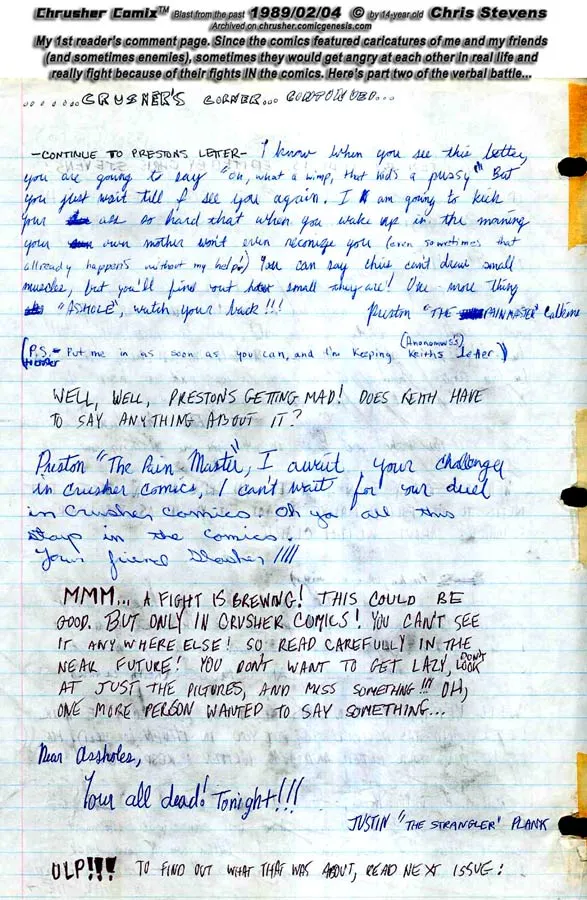 Chrusher Comix™ Blast from the past 1989/02/04 © by 14-year-old Chris Stevens
Archived on chrusher.comicgenesis.com
My 1st reader's comment page. Since the comics featured caricatures of me and my friends
(and sometimes enemies), sometimes they would get angry at each other in real life and
really fight because of their fights IN the comics. Here's part two of the verbal battle...
.......CRUSHER'S CORNER... CONTINUED...
-CONTINUE TO PRESTONS LETTER- I know when you see this letter,
you are going to say "oh, what a wimp, that kid's a pussy" But
you just wait till I see you again. I am going to kick
your ass so hard that when you wake up in the morning
your own mother won't even reconize you (even sometimes that
allready happen's without my help!) You can say chris, can't draw small
muscles, but you'll find out how small they are! One more thing
"ASHOLE", watch your back!!!
Preston "THE PAIN MASTER"
(P.S.- Put me in as soon as you can, and I'm keeping Keith's letter)
WELL, WELL, PRESTON'S GETTING MAD! DOES KEITH HAVE
TO SAY ANYTHING ABOUT IT?
Preston "The Pain Master", I await your challenge
in crusher comics, I can't wait for our duel
in Crusher Comics. Oh ya all this
stays in the comics.
Your friend Slasher!!!!
MMM... A FIGHT IS BREWING! THIS COULD BE
GOOD. BUT ONLY IN CRUSHER COMICS! YOU CAN'T SEE
IT ANY WHERE ELSE! SO READ CAREFULLY IN THE
NEAR FUTURE! YOU DON'T WANT TO GET LAZY, DON'T LOOK
AT JUST THE PICTURES, AND MISS SOMETHING!!! OH,
ONE MORE PERSON WANTED TO SAY SOMETHING...
Near Assholes,
Your all dead! Tonight!!!
JUSTIN "THE STRANGLER" PLANK
ULP!!! TO FIND OUT WHAT THAT WAS ABOUT, READ NEXT ISSUE!